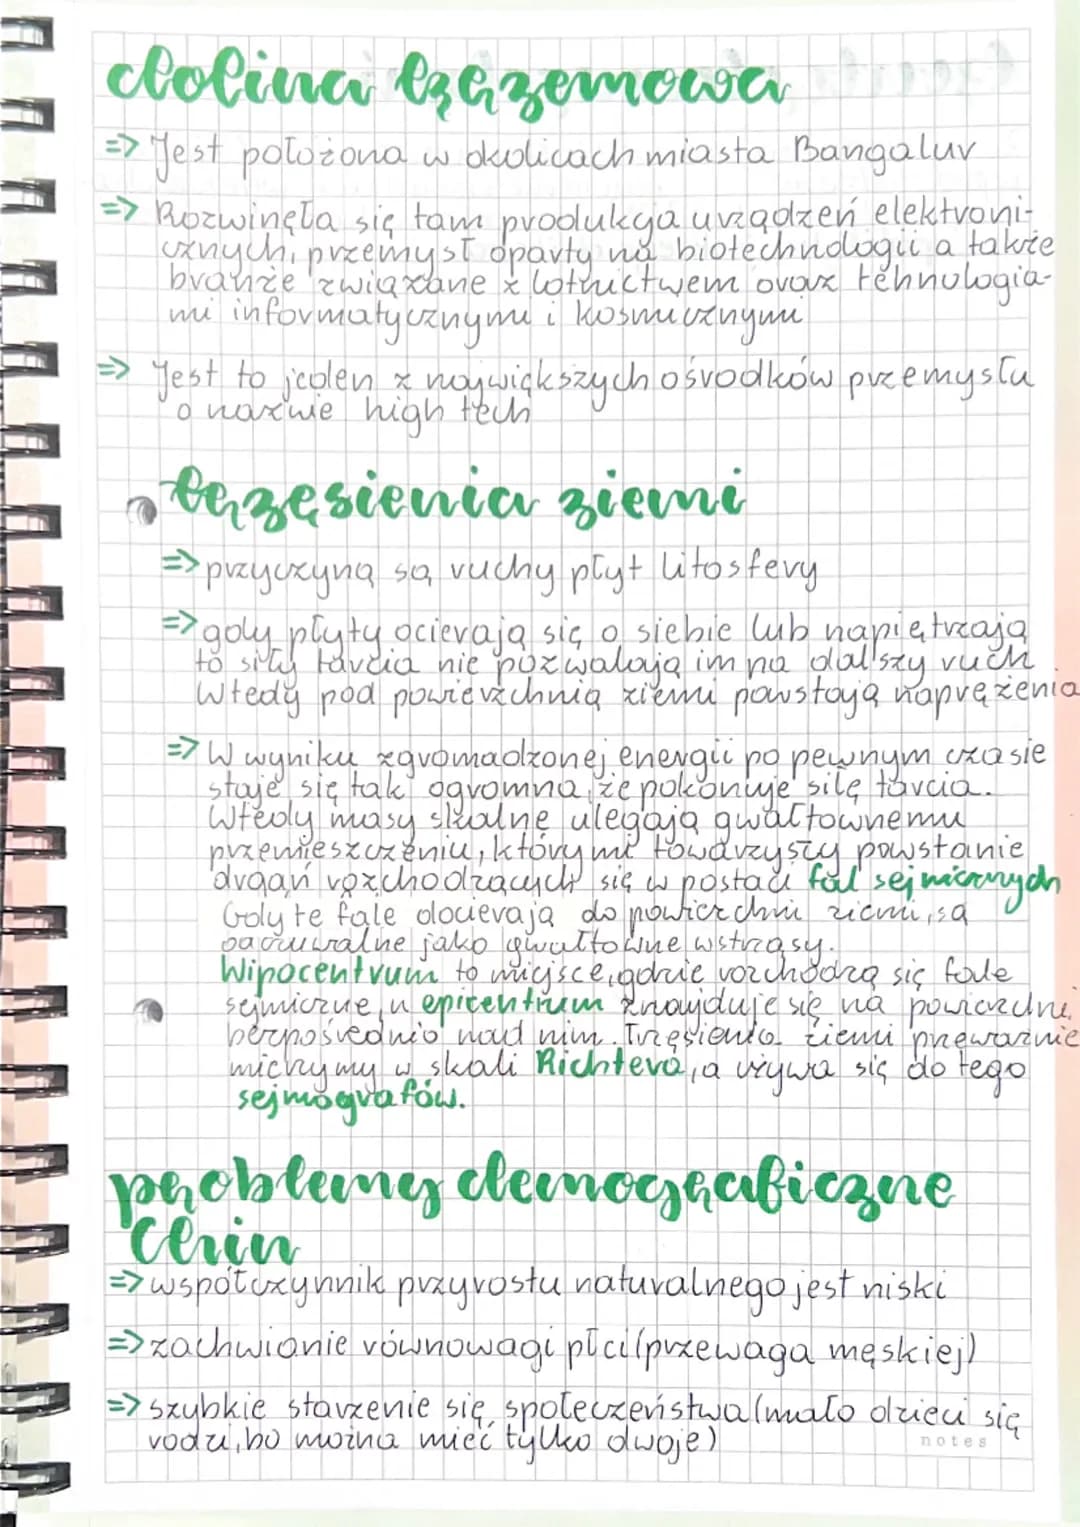 dolina krzemowa
=> Jest położona w okolicach miasta Bangalur
=> Rozwinęła się tam produkcja urządzeń elektroni-
cznych, przemysł oparty na biotechnologii a także
branże związane z lotnictwem oraz tehnologia-
mi informatycznymi i kosmicznymi
=> Jest to jeden z największych ośrodków przemysłu
o nazwie high tech
trzęsienia ziemi
=> przyczyną są ruchy płyt litosfery
=> gdy płyty ocierają się o siebie lub napiętrzają
to siły tarcia nie pozwalają im na dalszy ruch.
Wtedy pod powierzchnią ziemi powstają naprężenia
=> W wyniku zgromadzonej energii po pewnym czasie
staje się tak ogromna, że pokonuje siłę tarcia.
Wtedy masy skalne ulegają gwałtownemu
przemieszczeniu, którymi towarzyszy powstanie
drgań rozchodzących się w postaci fal sejmicznych
Gdy te fale docierają do powierzchni ziemi, są
odczuwalne jako gwałtowne wstrząsy.
Hipocentrum to miejsce, gdzie rozchodzą się fale
sejmiczne, a epicentrum znajduje się na powierzchni,
bezpośrednio nad nim. Trzęsienia ziemi
w skali Richtera, a używa się do tego
sejmografów.
problemy demograficzne
Chin
=> współczynnik przyrostu naturalnego jest niski
=> zachwianie równowagi płci (przewaga męskiej)
=> szybkie starzenie się społeczeństwa (mało dzieci się
rodzi, bo można mieć tylko dwoje)
notes